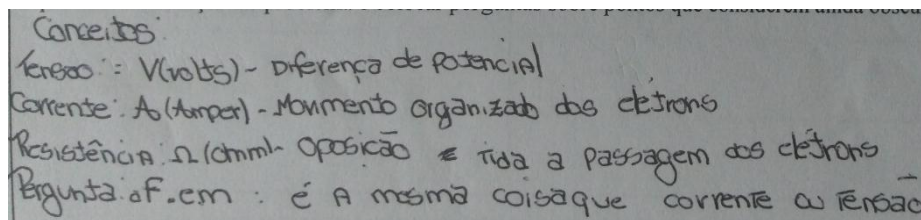 Conceitos:
Tensão: = V(volts) - Diferença de potencial
Corrente: A (Amper) - Movimento organizado dos eletrons
Resistência Ω (ohmm) - oposição tida a passagem dos eletrons
Pergunta: a F.em: é A mesma coisa que corrente ou Tensão